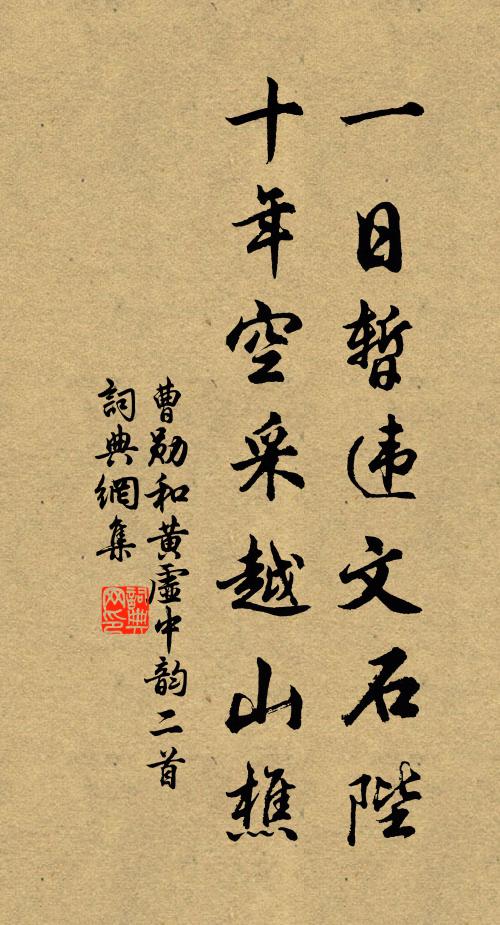 一日暂违文石陛
十年空采越山樵
曹勋和黄虚中韵二首
詞典網集
詞典网印